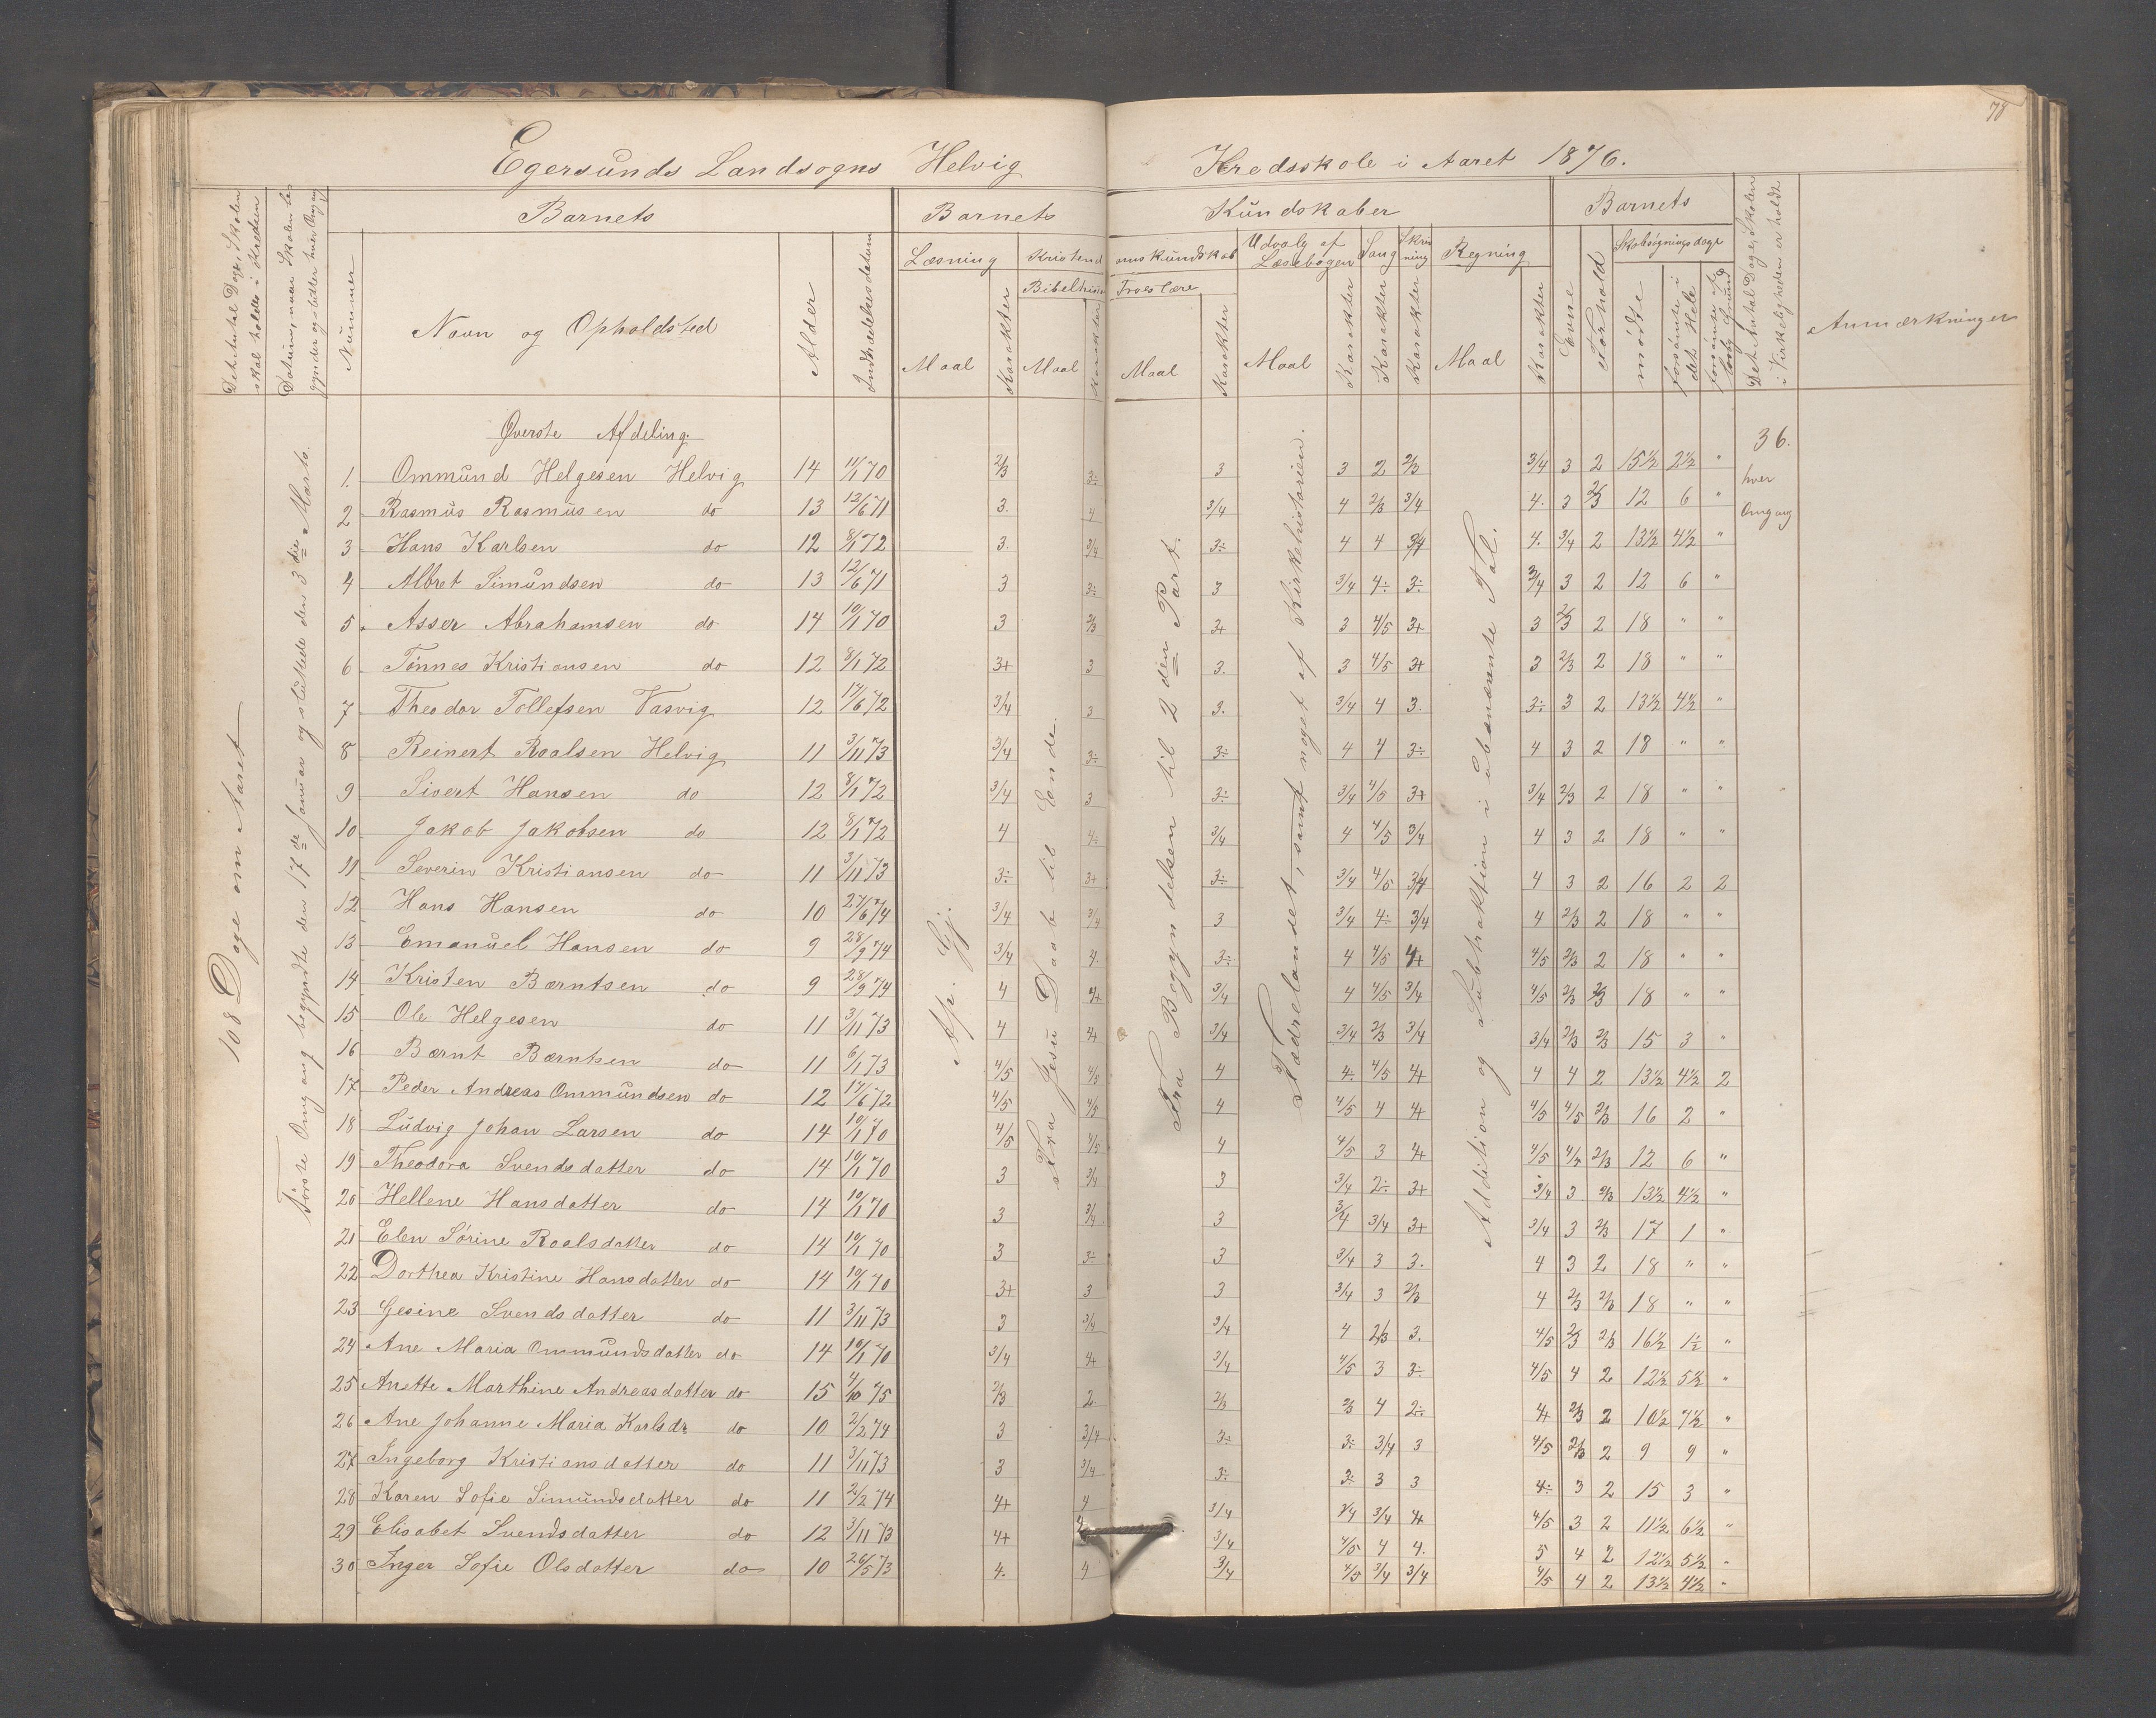 78
Egersunds Landsogns Helvig Kredsskole i Aaret 1876.
Det Antal Dage, Skolen skal holdes i Kredsen
Datum, naar Skolen begynder og slutter hver Omgang
Nummer
Barnets
Navn og Opholdsted
Alder
Indtrædelsesdatum
Barnets Kundskaber
Læsning
Maal
Karakter
Kristendomskundskab
Bibelhistorie
Maal
Karakter
Troeslære
Maal
Karakter
Udvalg af Læsebogen
Maal
Karakter
Sang
Karakter
Skrivning
Karakter
Regning
Maal
Karakter
Barnets
Evne
Forhold
Skolesøgningsdage
mødte
forsømte i det Hele
forsømte af lovlig Grund
Det Antal Dage, Skolen i Virkeligheden er holdt
Anmærkninger
108 Dage om Aaret
Første Omgang begyndte den 17de Januar og sluttede den 3die Marts.
Øverste Afdeling.
Ap. Gj.
Fra Jesu Daab til Ende.
Fra Begyndelsen til 2den Part.
Fædrelandet, samt noget af Kirkehistorien.
Addition og Subtraktion i ubenævnte Tal.
36. hver Omgang
1. Ommund Helgesen Helvig 14 11/1 70 2/3 3÷ 3 3 2 2/3 3/4 3 2 15½ 2½ "
2 Rasmus Rasmussen do 13 12/6 71 3. 4 3/4 4 2/3 3/4 4. 3 2/3 12 6 "
3 Hans Karlsen do 12 8/1 72 3. 3/4 3÷ 4 4 3/4 4. 3/4 2 13½ 4½ "
4 Albret Simundsen do 13 12/6 71 3 3÷ 3 3/4 4÷ 3÷ 3/4 3 2 12 6 "
5. Asser Abrahamsen do 14 10/1 70 3 2/3 3+ 3 4/5 3+ 3 2/3 2 18 " "
6 Tønnes Kristiansen do 12 8/1 72 3+ 3 3. 3 4/5 3+ 3 2/3 2 18 " "
7 Theodor Tollefsen Vasvig 12 17/6 72 3/4 3 3. 3/4 4 3. 3÷ 3 2 13½ 4½ "
8 Reinert Roalsen Helvig 11 3/11 73 3/4 3÷ 3÷ 4 4 3÷ 4 3 2 18 " "
9 Sivert Hansen do 12 8/1 72 3/4 3 3÷ 3/4 4/5 3+ 3/4 2/3 2 18 " "
10 Jakob Jakobsen do 12 8/1 72 4 4÷ 3/4 4 4/5 3/4 4 3 2 18 " "
11 Severin Kristiansen do 11 3/11 73 3÷ 3+ 3÷ 3/4 4/5 3/4 4 3 2 16 2 2
12 Hans Hansen do 10 27/6 74 3/4 3/4 3 3/4 4÷ 3/4 4 2/3 2 18 " "
13 Emanuel Hansen do 9 28/9 74 3/4 4. 3÷ 4 4/5 4+ 4/5 2/3 2 18 " "
14 Kristen Bærntsen do 9 28/9 74 4 4+ 3/4 4 4/5 3/4 4/5 2/3 2/3 18 " "
15 Ole Helgesen do 11 3/11 73 4 4+ 3/4 3/4 2/3 3/4 3/4 2/3 2/3 15 3 "
16 Bærnt Bærntsen do 11 6/1 73 4/5 4/5 4 4÷ 4/5 4+ 4 4 2 13½ 4½ 2
17 Peder Andreas Ommundsen do 12 17/6 72 4/5 4/5 4 4/5 4 4+ 4/5 4/5 2/3 16 2 "
18 Ludvig Johan Larsen do 14 10/1 70 4/5 4/5 4 4/5 3 4+ 4/5 4/5 2/3 12 6 "
19 Theodora Svendsdatter do 14 10/1 70 3 3/4 3 3/4 2÷ 3+ 3/4 3 2/3 13½ 4½ "
20 Hellene Hansdatter do 14 10/1 70 3 3/4 3 3/4 3/4 3+ 3/4 3 2/3 17 1 "
21 Elen Sørine Roalsdatter do 14 10/1 70 3 3÷ 3 3/4 3 3. 4 3 2 18 " "
22 Dorthea Kristine Hansdatter do 14 10/1 70 3+ 3 3 3/4 3 2/3 4 2/3 2/3 18 " "
23 Gesine Svendsdatter do 11 3/11 73 3 3/4 3/4 4 2/3 3. 4/5 2/3 2/3 16½ 1½ "
24 Ane Maria Ommundsdatter do 14 10/1 70 3/4 4+ 3/4 4/5 3 3÷ 4/5 4 2 12½ 5½ "
25 Anette Marthine Andreasdatter do 15 4/10 75 2/3 2. 2/3 2/3 4 2÷ 4+ 2/3 2 10½ 7½ "
26 Ane Johanne Maria Karlsdr do 10 2/2 74 3 3/4 3÷ 3÷ 3/4 3 4/5 2/3 2 9 9 "
27 Ingeborg Kristiansdatter do 11 3/11 73 3 3/4 3÷ 3÷ 3 3 4÷ 3 2 15 3 "
28 Karen Sofie Simundsdatter do 11 2/2 74 4+ 4 3/4 3/4 3/4 4+ 4/5 3 2 11½ 6½ "
29 Elisabet Svendsdatter do 12 3/11 73 4+ 4 3/4 4/5 4 4. 5 4 2 12½ 5½ "
30 Inger Sofie Olsdatter do 10 26/5 73 4. 4 3/4 4/5 3/4 3/4 4/5 4 2 13½ 4½ "